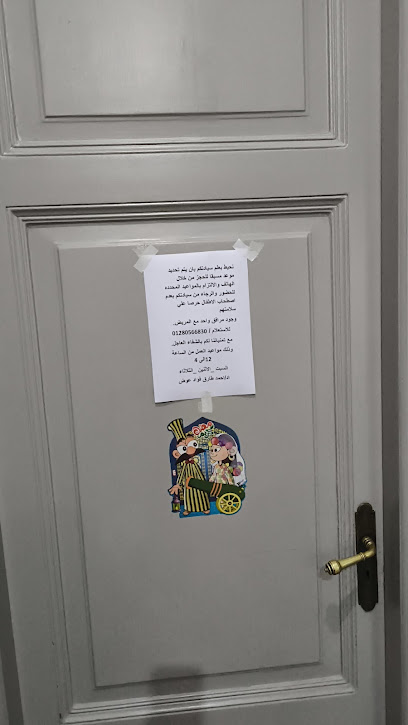 نحيط بعلم سيادتكم بان يتم تحديد
موعد مسبقا للحجز من خلال
الهاتف والالتزام بالمواعيد المحدده
للحضور والرجاء من سيادتكم بعدم
اصطحاب الاطفال حرصا علي
سلامتهم
وجود مرافق واحد مع المريض.
للاستعلام / 01280566830
مع تمنياتنا لكم بالشفاء العاجل.
وذلك مواعيد العمل من الساعة
12الي 4
السبت _الاثنين _الثلاثاء
د/احمد طارق فواد عوض